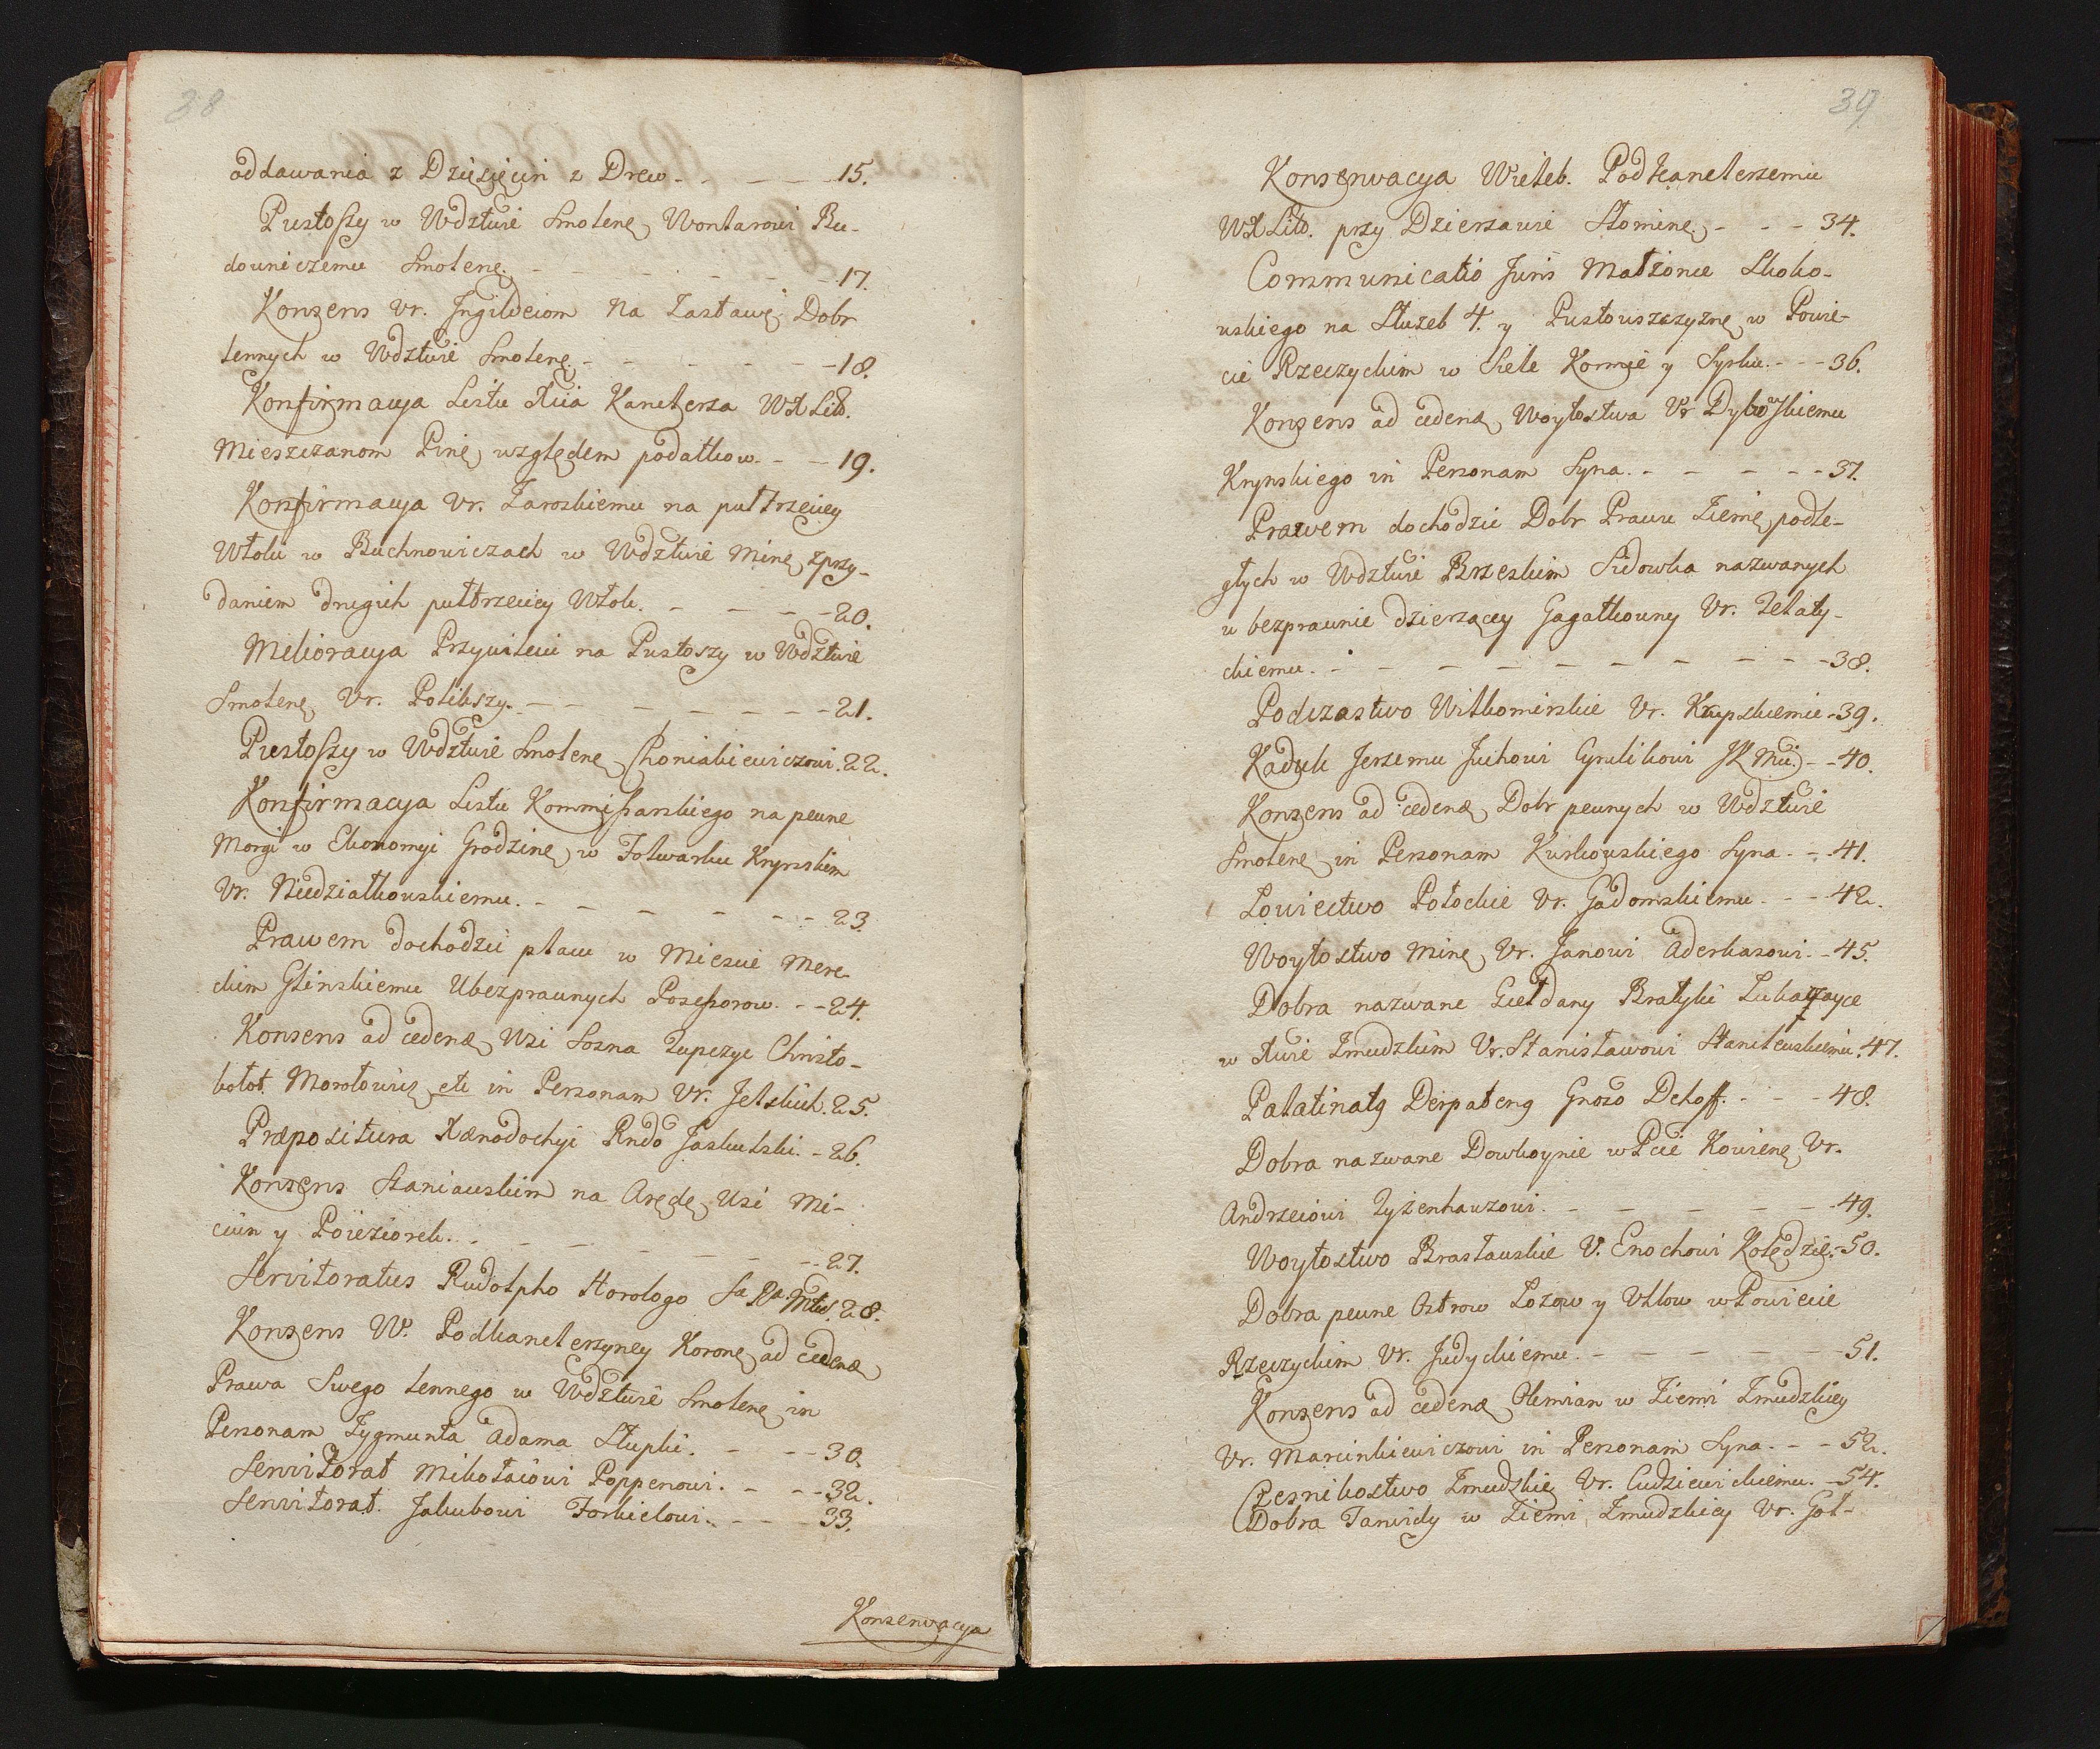 38
oddawania z Dziesięcin z Drew - - - - 15.
Pustoszy w Wdztwie Smolenę Wontarowi Bu-
downiczemu Smolenę. - - - - - - 17.
Konsens Vr. Ingildeiom na Zastawę Dobr
lennych w Wdztwie Smolenę. - - - - - 18.
Konfirmacya Listu Xcia Kanclerza WXLitt.
Mieszczanom Pinę względem podatkow. - - 19.
Konfirmacya Vr. Zaroskiemu na pułtrzeciey
Włoki w Buchnowiczach w Wdztwie Minę z przy-
daniem drugich pułtrzeciey Włok. - - - - 20.
Melioracya Przywileiu na Pustoszy w Wdztwie
Smolenę Vr. Polikszy. - - - - - - - 21.
Pustoszy w Wdztwie Smolenę Choniakiewiczowi. 22.
Konfirmacya Listu Kommissarskiego na pewne
Morgi w Ekonomyi Grodzinę w Folwarku Krynskim
Vr. Niedziałkowskiemu. - - - - - - 23.
Prawem dochodzić płacu w Miescie Mere-
ckim Glinskiemu Ubezprawnych Possessorow. - - 24.
Konsens ad cedenđ Wsi Sosna Zupczyc Christo-
bołot. Morołowicz etc in Personam Vr. Jelskich. 25.
Præpositura Xenodochyi Rndo Jaskulski. - 26.
Konsens Staniawskim na Arędę Wsi Mi-
cciun y Poieziorek. - - - - - - - 27.
Servitoratus Rudolpho Horologo Sa Ra Mtis. 28.
Konsens W. Podkanclerzyney Koronę ad cedenđ
Prawa Swego lennego w Wdztwie Smolenę in
Personam Zygmunta Adama Słupki. - - - 30.
Servitorat Mikołaiowi Poppenowi. - - - 32.
Servitorat. Jakubowi Forkielowi. - - - 33.
Konserwacya
39
Konserwacya Wieleb. Podkanclerzemu
WXLitt. przy Dzierzawie Słominę. - - - 34.
Communicatio Juris Małżonce Skoko-
wskiego na Służeb 4. y Pustowszczyznę w Powie-
cie Rzeczyckim w Siele Kormie y Sysku. - - - 36.
Konsens ad cedenđ Woytostwa Vr Dybowskiemu
Krynskiego in Personam Syna. - - - - - 37.
Prawem dochodzić Dobr Prawu Ziemę podle-
głych w Wdztwie Brzeskim Sidowka nazwanych
u bezprawnie dzierzącey Gagatkowny Vr. Zelaty-
ckiemu. - - - - - - - - - - 38.
Podczastwo Wiłkomirskie Vr. Krupskiemu - 39.
Kaduk Jerzemu Juchowi Cyrulikowi JKMci. - - 40.
Konsens ad cedenđ Dobr pewnych w Wdztwie
Smolenę in Personam Kurkowskiego Syna. - - 41.
Łowiectwo Połockie Vr. Gadomskiemu. - - - 42.
Woytostwo Minę Vr. Janowi Aderkasowi. - 45.
Dobra nazwane Giełdany Bratyki Lukayzayce
w Xwie Zmudzkim Vr. Stanisławowi Stanilewskiemu. 47.
Palatinatg Derpateng Groso Dehoff. - - - 48.
Dobra nazwane Dowkoynie w Pcie Kowienę Vr.
Andrzeiowi Zyzenhauzowi. - - - - - - 49.
Woytostwo Brasławskie V. Enochowi Kolędzie. - 50.
Dobra pewne Ostrow Lozow y Utłow w Powiecie
Rzeczyckim Vr. Judyckiemu. - - - - - - 51.
Konsens ad cedenđ Olemian w Ziemi Zmudzkiey
Vr. Marcinkiewiczowi in Personam Syna. - - - 52.
Czesnikostwo Zmudzkie Vr. Cudziewickiemu. - 54.
Dobra Janwidy w Ziemi Zmudzkiey Vr. Goł-